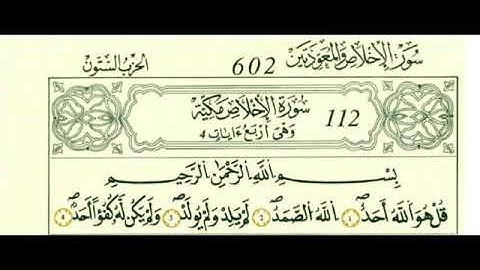 سورة الإخلاص والمعوذتين 602 الحزب الستون
سُورَةُ الإِخْلَاصِ مَكِّيَّةٌ 112
وَهْىَ أَرْبَعُ ءَايَاتٍ 4
بِسْمِ اللَّهِ الرَّحْمَٰنِ الرَّحِيمِ
قُلْ هُوَ اللَّهُ أَحَدٌ ۖ 1 اللَّهُ الصَّمَدُ ۖ 2 لَمْ يَلِدْ وَلَمْ يُولَدْ ۖ 3 وَلَمْ يَكُن لَّهُ كُفُؤًا أَحَدٌ ۖ 4